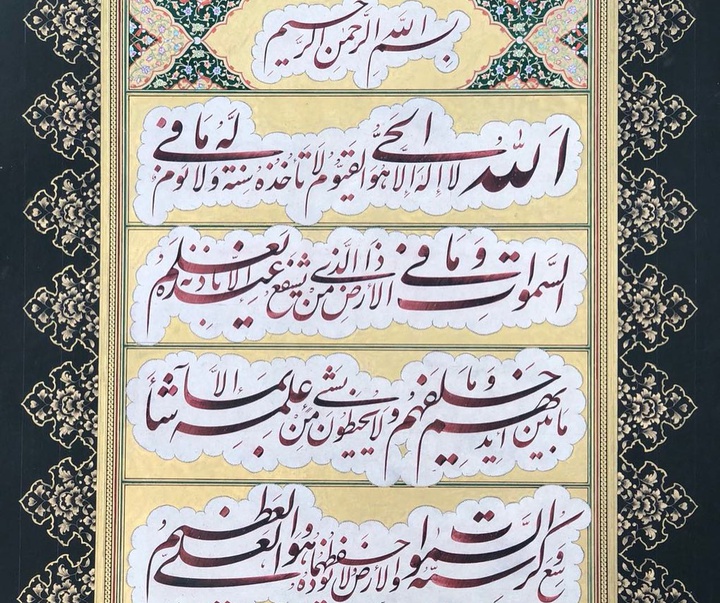 بسم الله الرحمن الرحیم
الله لا اله الا هو الحی القیوم لا تأخذه سنة ولا نوم له ما فی
السموات و ما فی الارض من ذا الذی یشفع عنده الا باذنه یعلم
ما بین ایدیهم و ما خلفهم ولا یحیطون بشی من علمه الا بما شآء
وسع کرسیه السموات والارض ولا یوده حفظهما و هو العلی العظیم